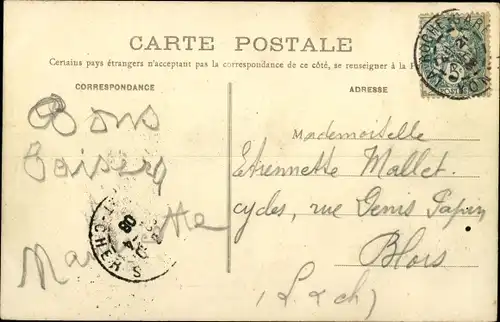 CARTE POSTALE
Certains pays étrangers n'acceptant pas la correspondance de ce côté, se renseigner à la
CORRESPONDANCE
ADRESSE
Bons
Baisers
Mademoiselle
Etiennette Mallet
cycles, rue Denis Papin
Blois
(L. & ch)
T-CHER
08
LA ROCHE-GARE